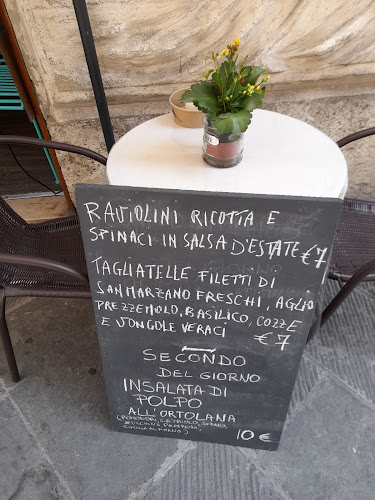 RAVIOLINI RICOTTA E
SPINACI IN SALSA D'ESTATE €7
TAGLIATELLE FILETTI DI
SAN MARZANO FRESCHI, AGLIO
PREZZEMOLO, BASILICO, COZZE
E VONGOLE VERACI
€7
SECONDO
DEL GIORNO
INSALATA DI
POLPO
ALL'ORTOLANA
(POMODORI, CETRIOLO,
10€